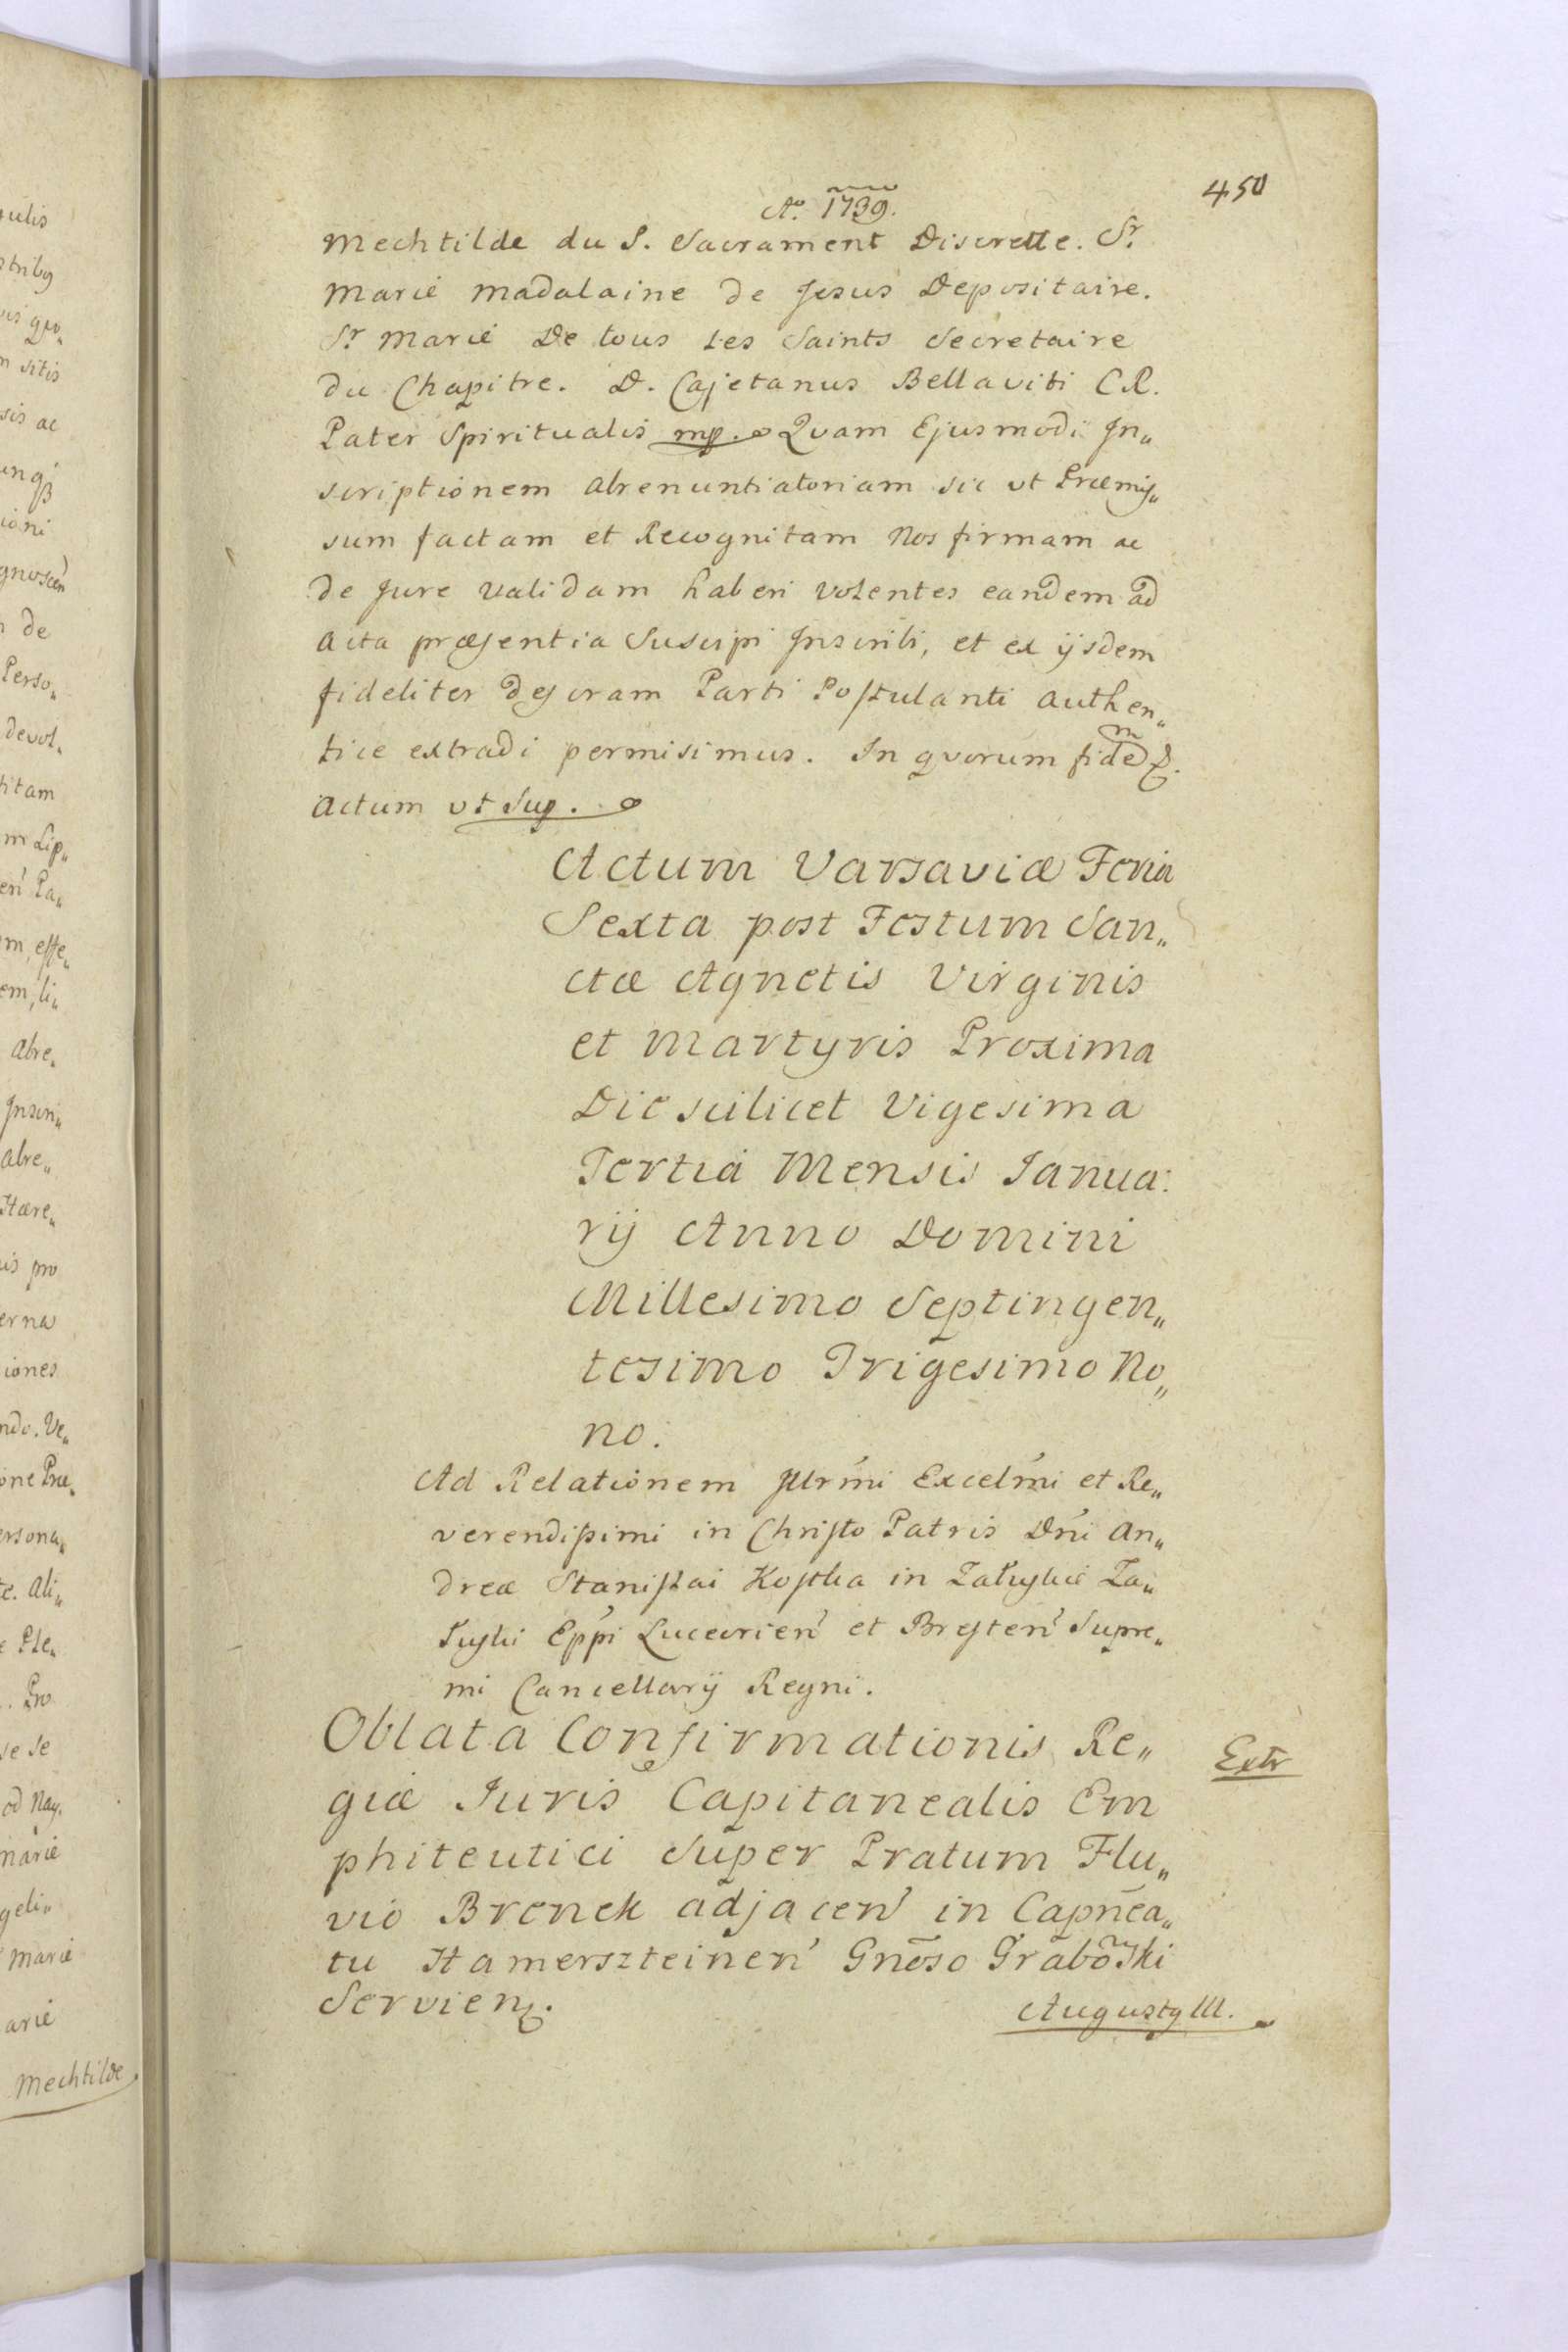 450
Ao. 1739.
Mechtilde du S. Sacrament Discrette. Sr.
Marie Madalaine de Jesus Depositaire.
Sr Marie De tous Les Saints Secretaire
du Chapitre. D. Cajetanus Bellaviti C.R.
Pater Spiritualis mp. Quam Ejusmodi In„
scriptionem abrenuntiatoriam sic ut Præmis„
sum factam et Recognitam Nos firmam ac
de Jure validam haberi volentes eandem ad
acta præsentia Suscipi Inscribi, et ex ijsdem
fideliter descram Parti Postulanti authen„
tice extradi permisimus. In quorum fidem &.
Actum ut Sup.
Actum Varsaviæ Feria
Sexta post Festum San„
ctæ Agnetis Virginis
et Martyris Proxima
Die scilicet Vigesima
Tertia Mensis Janua:
rij Anno Domini
Millesimo Septingen„
tesimo Trigesimo No„
no.
Ad Relationem Illrmi Excelmi et Re„
verendissimi in Christo Patris Dni An„
dreæ Stanislai Kostka in Załuskie Za„
łuski Eppi Luceorien et Bresten Supre„
mi Cancellarij Regni.
Oblata Confirmationis Re„
giæ Juris Capitanealis Em
phiteutici Super Pratum Flu„
vio Brenek adjacen in Capnea„
tu Hamerszteinen Gnoso Graboski
Servien.
Extr
Augusty III.
gulis
n sitis
sis ac
ioni
de
Perso„
devol„
m Lip„
en Pa„
m, esse„
em, li„
Abre„
Inscri„
abre„
Hære„
is pro
erna
iones
ndo. Ve„
one Præ„
ersona„
te. Ali„
e Ple„
. Pro
se se
od Nay.
marie
geli„
Marie
arie
Mechtilde